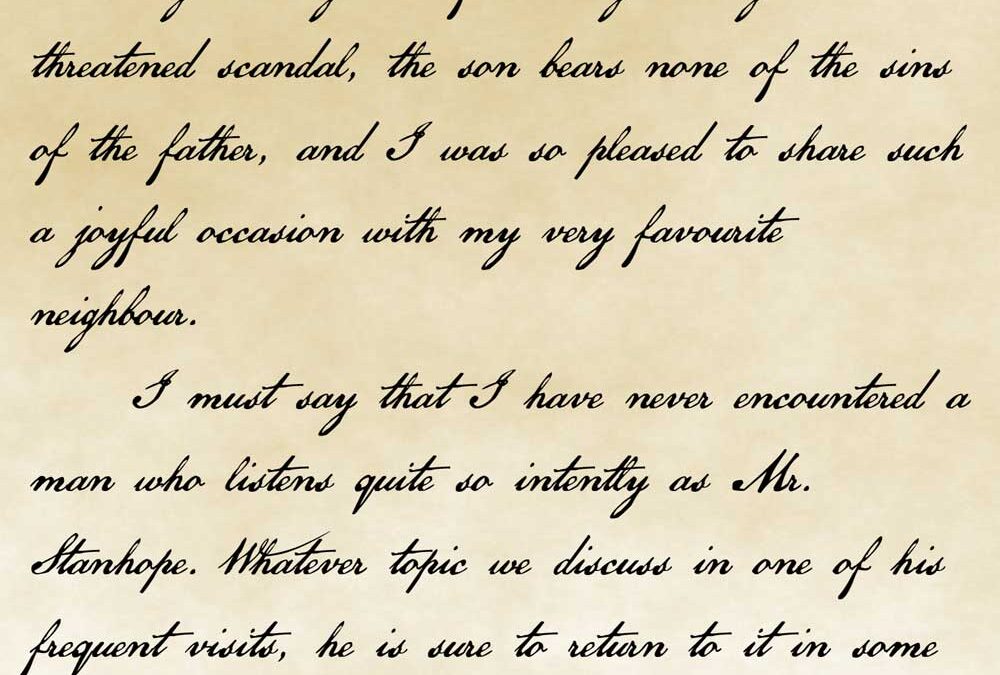 threatened scandal, the son bears none of the sins
of the father, and I was so pleased to share such
a joyful occasion with my very favourite
neighbour.
I must say that I have never encountered a
man who listens quite so intently as Mr.
Stanhope. Whatever topic we discuss in one of his
frequent visits, he is sure to return to it in some